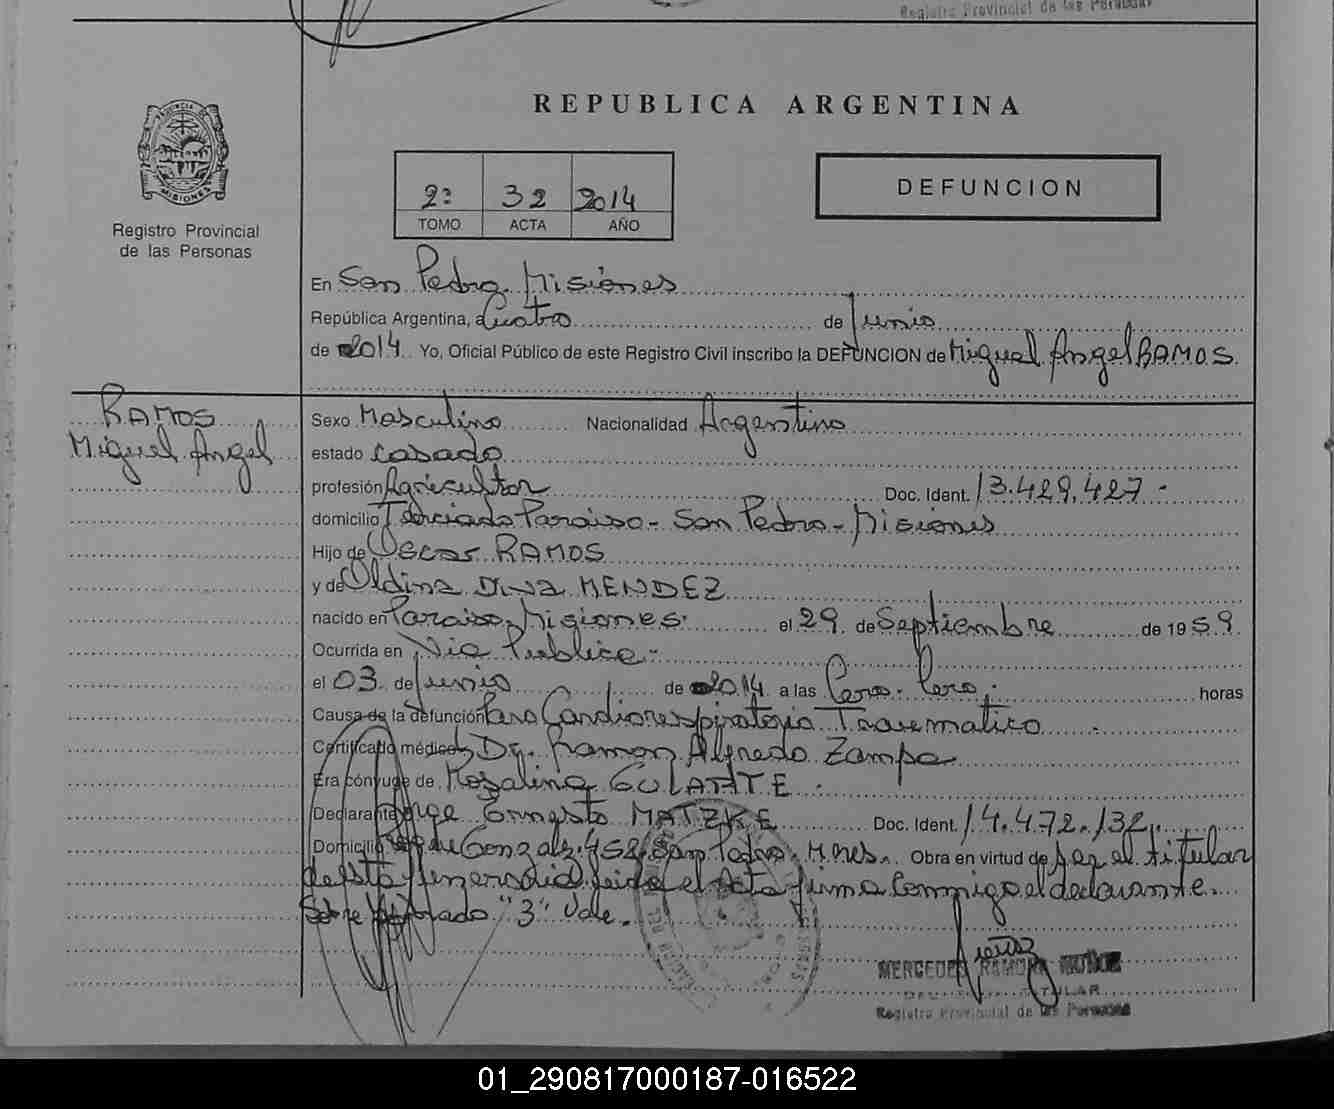 Registro Provincial de las Personas
REPUBLICA ARGENTINA
PROVINCIA DE
MISIONES
Registro Provincial
de las Personas
2º 32 2014
TOMO ACTA AÑO
DEFUNCION
En San Pedro, Misiones
República Argentina, a Cuatro de Junio
de 2014 Yo, Oficial Público de este Registro Civil inscribo la DEFUNCION de Miguel Angel RAMOS.
RAMOS
Miguel Angel
Sexo Masculino Nacionalidad Argentino
estado casado
profesión Agricultor Doc. Ident. 13.429.427 -
domicilio Terciado Paraiso - San Pedro - Misiones
Hijo de Oscar RAMOS
y de Oldina Diva MENDEZ
nacido en Paraiso, Misiones. el 29 de Septiembre de 1959.
Ocurrida en Via Publica -
el 03 de Junio de 2014 a las Cero - Cero, horas
Causa de la defunción Paro Cardiorespiratorio Traumatico
Certificado médico Dr. Ramon Alfredo Zampa
Era cónyuge de Rozalina GULARTE.
Declarante Jorge Ernesto MATZKE Doc. Ident. 14.472.132,
Domicilio Roque Gonzalz. 458. San Pedro. Mnes. Obra en virtud de ser el titular
de esta funeraria leida el Acta firma Conmigo el declarante.
Sobre borrado "3" Vale.
MERCEDES RAMONA MUÑOZ
TITULAR
Registro Provincial de las Personas
01_290817000187-016522